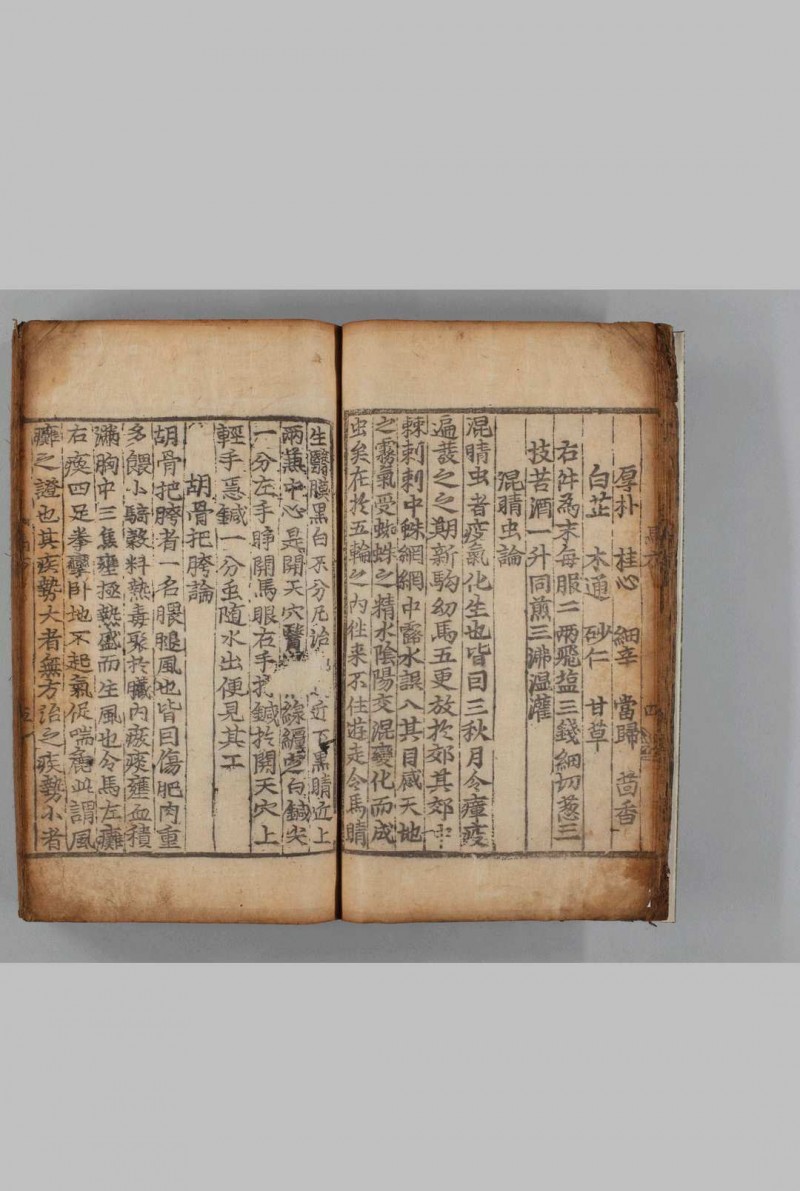 厚朴 桂心 細辛 當歸 茴香
白芷 木通 砂仁 甘草
右件為末每服二兩飛塩三錢細切葱三
枝苦酒一升同煎三沸温灌
混睛虫論
混睛虫者疫氣化生也皆曰三秋月令瘴疫
遍蕟之之期新駒幼馬五更放於郊其郊
棘刺刺中蛛網網中露水誤入其目感天地
之霧氣受蜘蛛之精水陰陽交混變化而成
虫矣在於五輪之内徃来不住遊走令馬睛
生瞖膜黒白不分凡治 近下黒睛近上
兩蕉中心是開天穴醫 線纏定白鍼尖
一分左手睜開馬眼右手扚鍼於開天穴上
輕手急鍼一分虫随水出便見其工
胡骨把胯論
胡骨把胯者一名腲腿風也皆曰傷肥肉重
多餵小騎穀料熱毒聚於臓内痰瘀壅血積
滿胸中三焦壅極熱盛而生風也令馬左癱
右瘓四足拳攣卧地不起氣促喘麄此謂風
癱之證也其疾勢大者無方治之疾勢小者